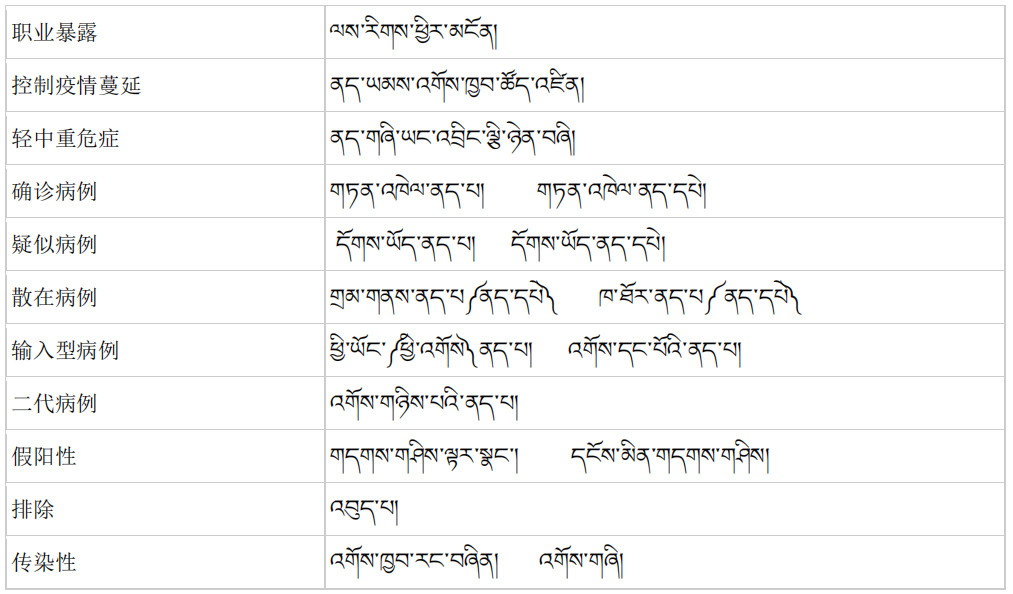 职业暴露 ལས་རིགས་ཕྱིར་མངོན།
控制疫情蔓延 ནད་ཡམས་འགོས་ཁྱབ་ཚོད་འཛིན།
轻中重危症 ནད་གཞི་ཡང་འབྲིང་ལྕི་ཉེན་བཞི།
确诊病例 གཏན་འཁེལ་ནད་པ། གཏན་འཁེལ་ནད་དཔེ།
疑似病例 དོགས་ཡོད་ནད་པ། དོགས་ཡོད་ནད་དཔེ།
散在病例 གྲམ་གནས་ནད་པ༼ནད་དཔེ༽ ཁ་ཐོར་ནད་པ༼ནད་དཔེ༽
输入型病例 ཕྱི་ཡོང་༼ཕྱི་འགོས༽ནད་པ། འགོས་དང་པོའི་ནད་པ།
二代病例 འགོས་གཉིས་པའི་ནད་པ།
假阳性 གདགས་གཤིས་ལྟར་སྣང་། དངོས་མིན་གདགས་གཤིས།
排除 འབུད་པ།
传染性 འགོས་ཁྱབ་རང་བཞིན། འགོས་གཞི།